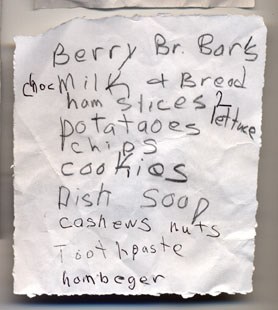 Berry Br. Bars
choc Milk & Bread
ham slices 2
lettuce
potatoes
chips
cookies
Dish Soap
cashews nuts
Toothpaste
hambeger